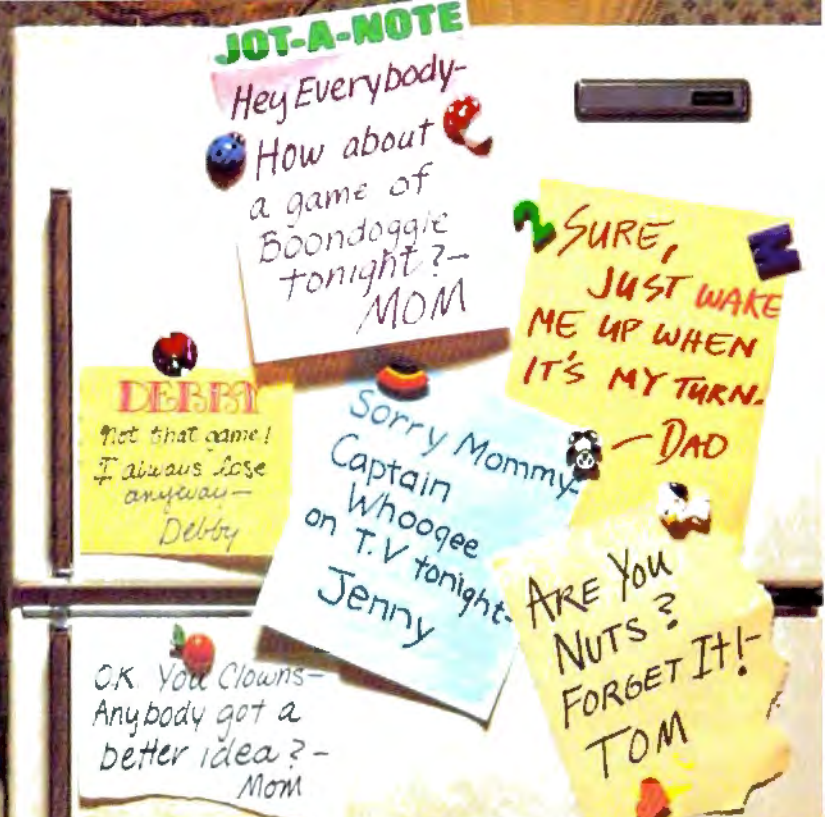 JOT-A-NOTE
Hey Everybody-
How about
a game of
Boondoggle
tonight?-
MOM
SURE,
JUST WAKE
ME UP WHEN
IT'S MY TURN.
- DAD
DEBBY
Not that game!
I always lose
anyway-
Debby
Sorry Mommy-
Captain
Whooqee
on T.V tonight-
Jenny
ARE YOU
NUTS?
FORGET It!-
TOM
O.K. You Clowns-
Anybody got a
better idea?-
Mom